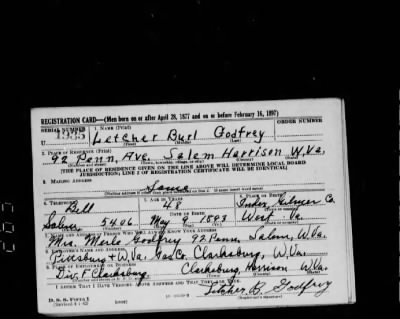 REGISTRATION CARD—(Men born on or after April 28, 1877 and on or before February 16, 1897)
SERIAL NUMBER 1. NAME (Print) ORDER NUMBER
U 1935 Letcher Burl Godfrey
(First) (Middle) (Last)
2. PLACE OF RESIDENCE (Print)
92 Penn. Ave. Salem Harrison W.Va.
[THE PLACE OF RESIDENCE GIVEN ON THE LINE ABOVE WILL DETERMINE LOCAL BOARD
JURISDICTION; LINE 2 OF REGISTRATION CERTIFICATE WILL BE IDENTICAL]
3. MAILING ADDRESS
Same
4. TELEPHONE 5. AGE IN YEARS 6. PLACE OF BIRTH
Bell 48 Gilmer Co.
DATE OF BIRTH
Salem, 5406 May 9 1893 West Va.
7. NAME AND ADDRESS OF PERSON WHO WILL ALWAYS KNOW YOUR ADDRESS
Mrs. Merle Godfrey 92 Penn, Salem, W.Va.
8. EMPLOYER'S NAME AND ADDRESS
Pittsburg & W.Va. Gas Co. Clarksburg, W.Va.
9. PLACE OF EMPLOYMENT OR BUSINESS
Clarksburg, Clarksburg, Harrison W.Va.
I AFFIRM THAT I HAVE VERIFIED ABOVE ANSWERS AND THAT THEY ARE TRUE.
D. S. S. Form 1
(Revised 4-1-42) (over) Letcher B. Godfrey
(Registrant's signature)